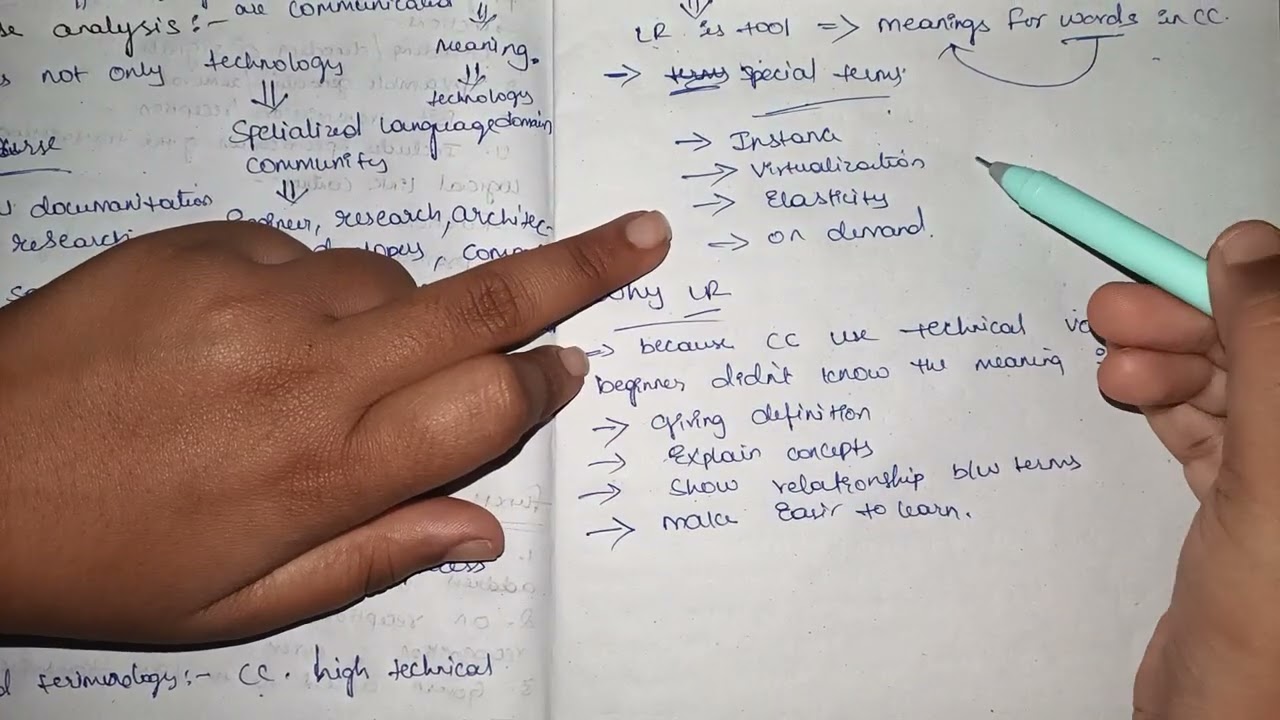 are communicated
se analysis:-
meaning.
s not only technology
technology
Specialized language domain
community
documanitation
research, architec-
research
LR is tool => meanings for words in CC.
-> terms special terms.
-> Instana
-> Virtualization
-> Elasticity
-> on demand.
why LR
=> because CC use technical
beginner didn't know the meaning
-> giving definition
-> Explain concepts
-> show relationship b/w terms
-> make Easir to learn.
terimorology:- CC. high technical